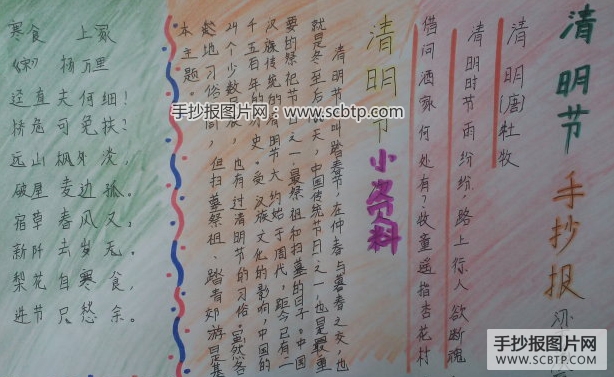 清明节手抄报
清明(唐)杜牧
清明时节雨纷纷,路上行人欲断魂
借问酒家何处有?牧童遥指杏花村
清明节小资料
清明节 叫踏春节,在仲春与暮春之交,也
就是冬至后 天,中国传统节日之一,也是最重
要的祭祀节 之一,是祭祖和扫墓的日子。中国
汉族传统的清明节大约始于周代,距今已有二
千五百年的 史。受汉族文化的影响,中国的
24个少数 族,也有过清明节的习俗。虽然各
地习俗 同,但扫墓祭祖、踏青郊游是基
本主题。
手抄报图片网:www.scbtp.com
寒食 上冢
《宋》 杨万里
迳直夫何细!
桥危可免扶?
远山枫外淡,
破屋麦边孤。
宿草春风又,
新阡去岁无。
梨花自寒食,
进节只愁余。
手抄报图片网
WWW.SCBTP.COM